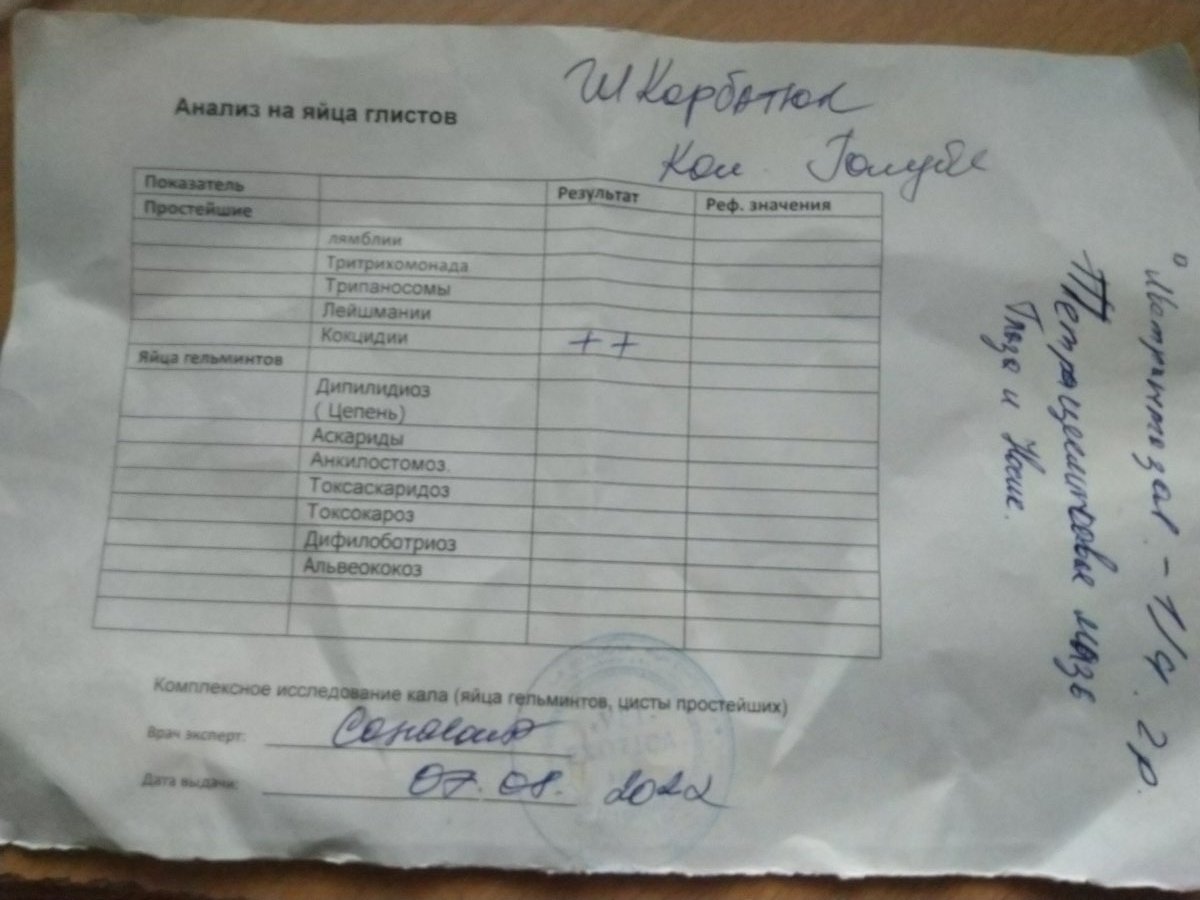 Анализ на яйца глистов
Шкарбатюк
Кал Голубь
Показатель Результат Реф. значения
Простейшие
лямблии
Тритрихомонада
Трипаносомы
Лейшмании
Кокцидии ++
Яйца гельминтов
Дипилидиоз
( Цепень)
Аскариды
Анкилостомоз.
Токсаскаридоз
Токсокароз
Дифилоботриоз
Альвеококоз
Комплексное исследование кала (яйца гельминтов, цисты простейших)
Врач эксперт:
Дата выдачи: 07.08. 2022
- 1/4. 2р.
Тетрациклиновые мазь
Глаза и